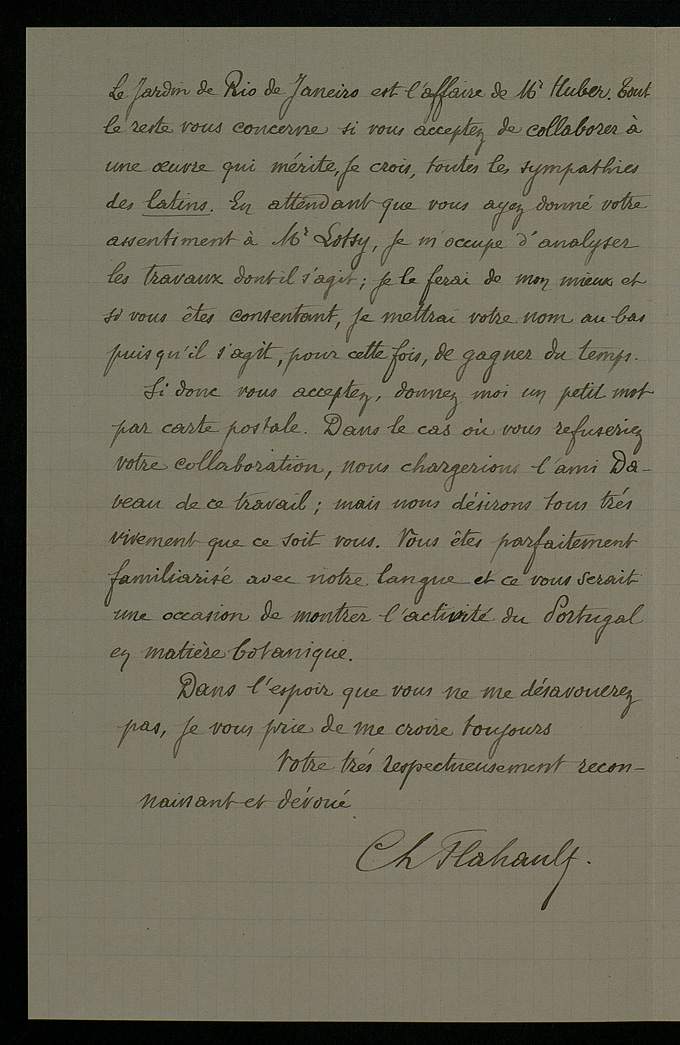 Le Jardin de Rio de Janeiro est l'affaire de Mr Huber. Tout
le reste vous concerne si vous acceptez de collaborer à
une œuvre qui mérite, je crois, toutes les sympathies
des latins. En attendant que vous ayez donné votre
assentiment à Mr Lotsy, je m'occupe d'analyser
les travaux dont il s'agit ; je le ferai de mon mieux et
si vous êtes consentant, je mettrai votre nom au bas
puisqu'il s'agit, pour cette fois, de gagner du temps.
Si donc vous acceptez, donnez moi un petit mot
par carte postale. Dans le cas où vous refuseriez
votre collaboration, nous chargerions l'ami Da-
veau de ce travail ; mais nous désirons tous trés
vivement que ce soit vous. Vous êtes parfaitement
familiarisé avec notre langue et ce vous serait
une occasion de montrer l'activité du Portugal
en matière botanique.
Dans l'espoir que vous ne me désavouerez
pas, je vous prie de me croire toujours
Votre trés respectueusement recon-
naissant et dévoué
Ch Flahault.